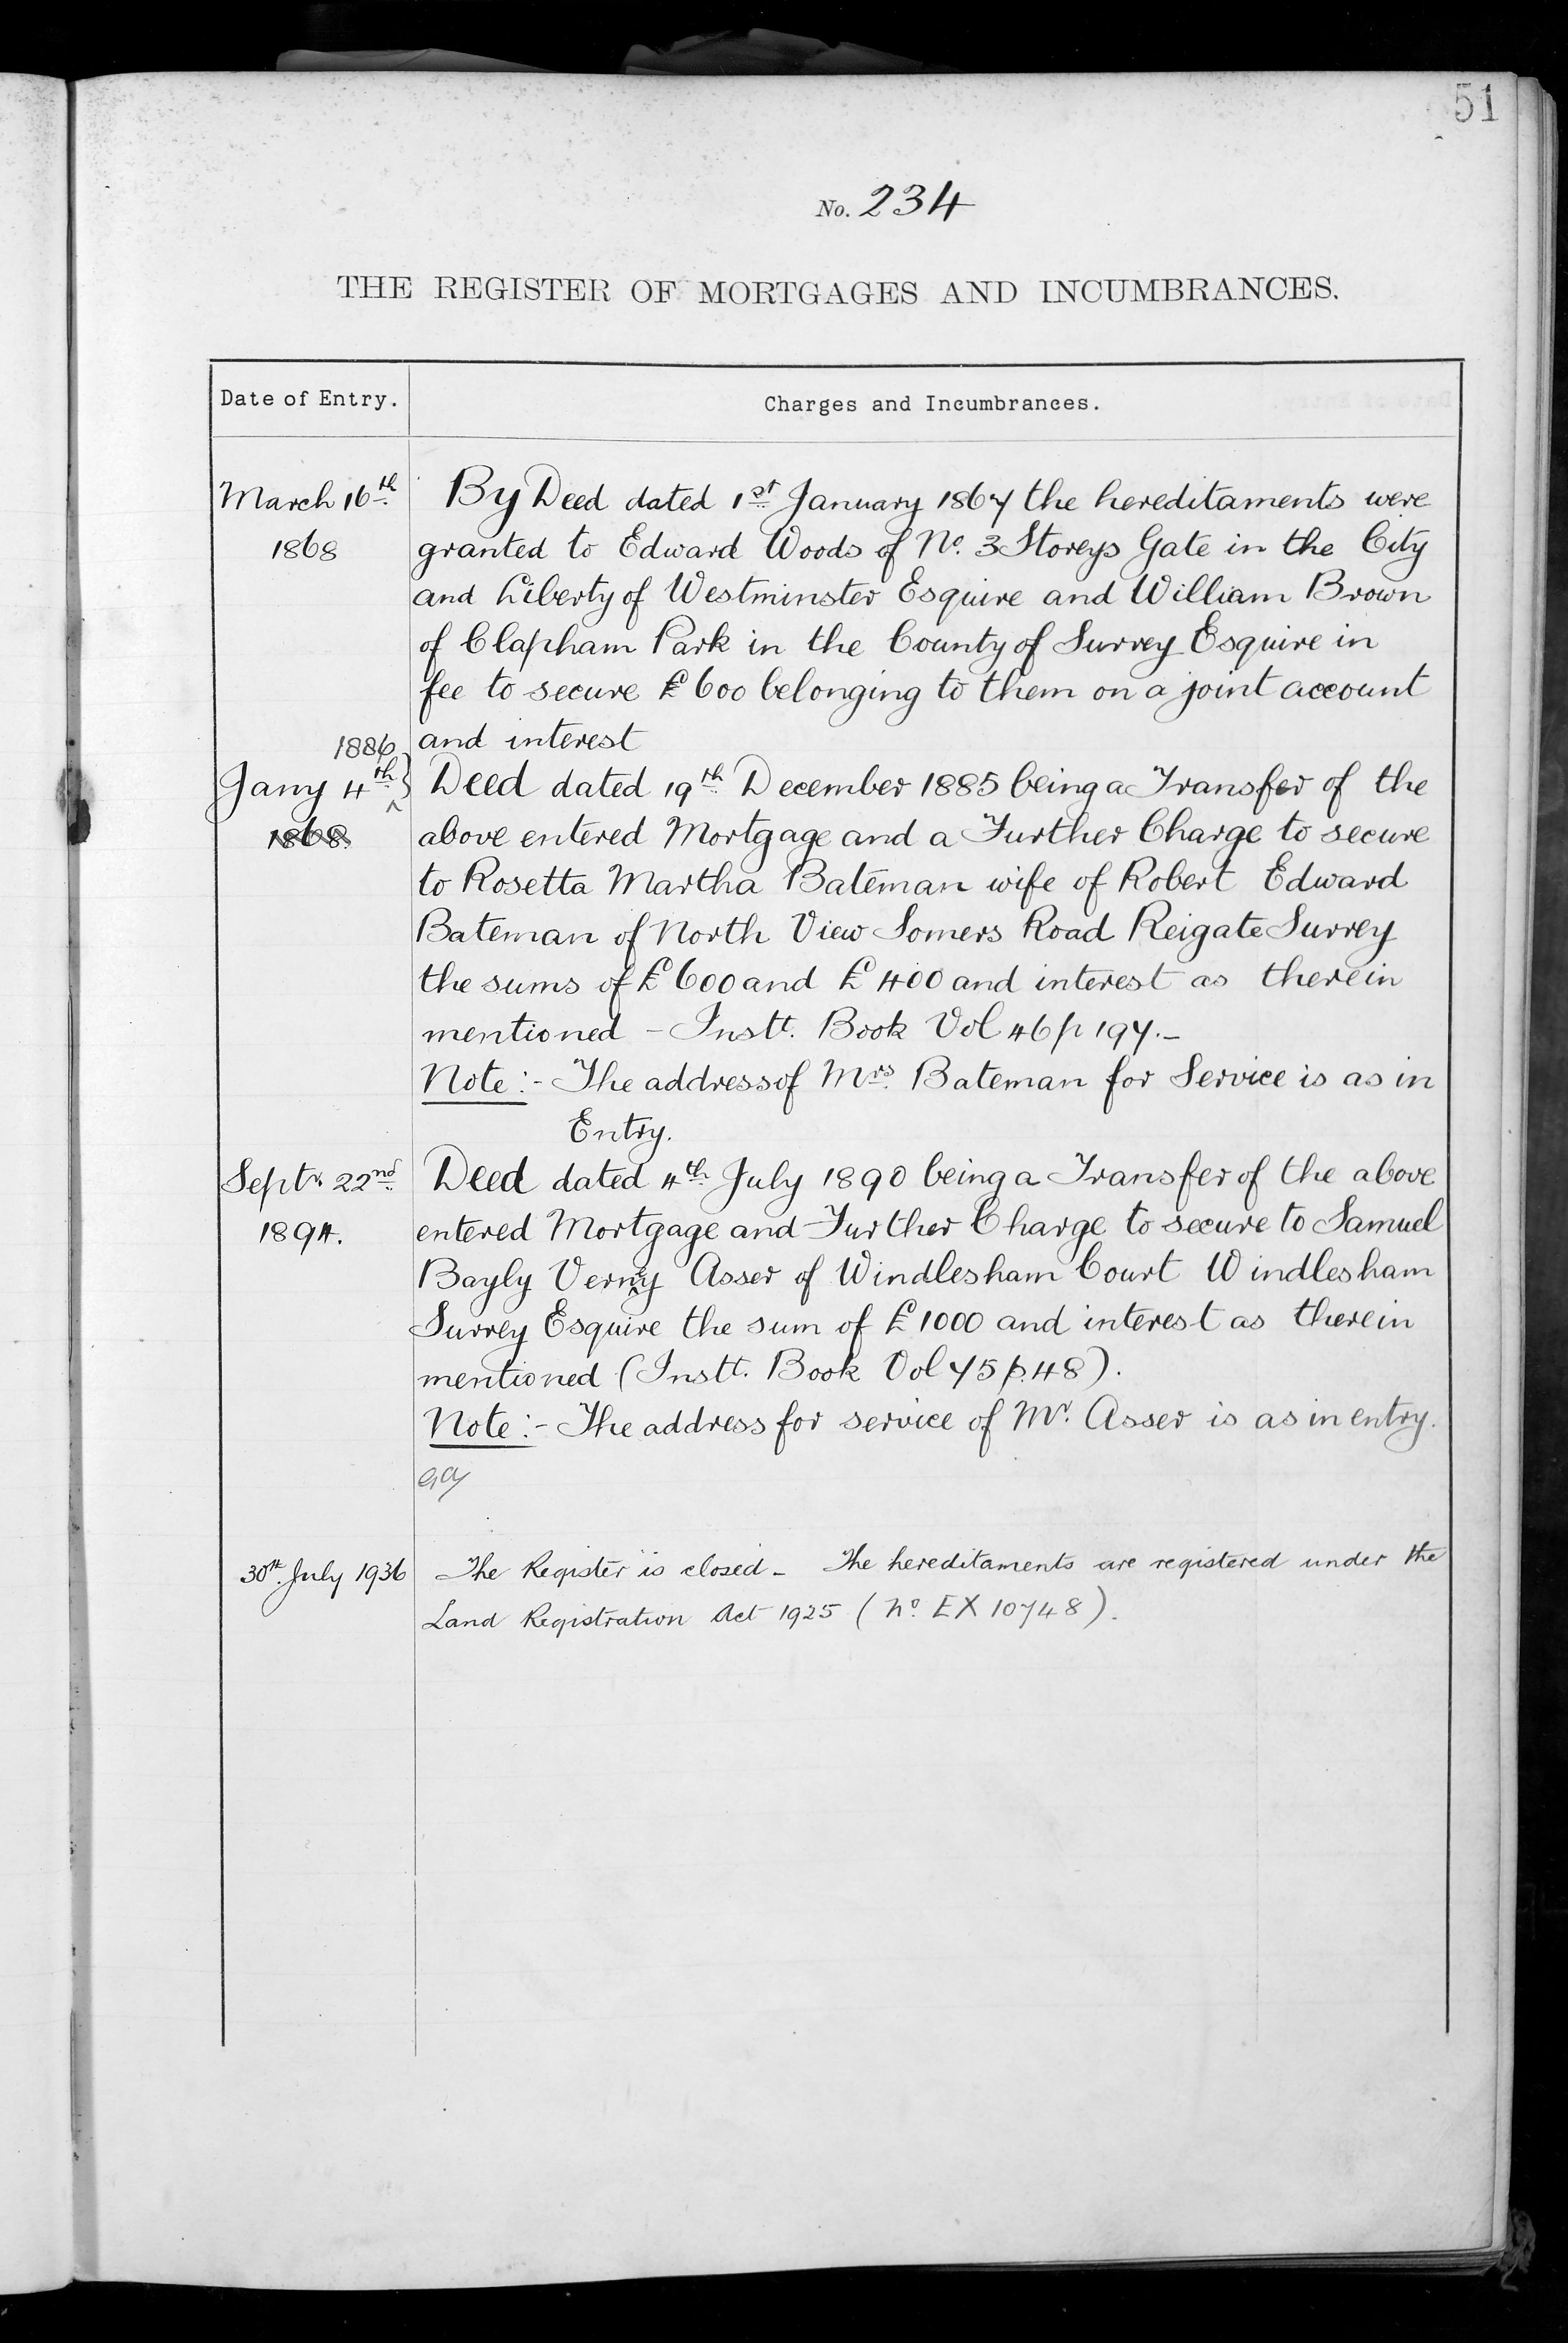 51
No. 234
THE REGISTER OF MORTGAGES AND INCUMBRANCES.
Date of Entry.
Charges and Incumbrances.
March 16th
1868
By Deed dated 1st January 1867 the hereditaments were
granted to Edward Woods of No. 3 Storeys Gate in the City
and Liberty of Westminster Esquire and William Brown
of Clapham Park in the County of Surrey Esquire in
fee to secure £600 belonging to them on a joint account
and interest
1886
Jany 4th }
1868.
Deed dated 19th December 1885 being a Transfer of the
above entered Mortgage and a Further Charge to secure
to Rosetta Martha Bateman wife of Robert Edward
Bateman of North View Somers Road Reigate Surrey
the sums of £600 and £400 and interest as therein
mentioned – Instt. Book Vol 46 p 197.–
Note:- The address of Mrs. Bateman for Service is as in
Entry.
Septr. 22nd
1894.
Deed dated 4th July 1890 being a Transfer of the above
entered Mortgage and Further Charge to secure to Samuel
Bayly Verney Asser of Windlesham Court Windlesham
Surrey Esquire the sum of £1000 and interest as therein
mentioned (Instt. Book Vol 75 p. 48).
Note:- The address for service of Mr. Asser is as in entry.
30th July 1936
The Register is closed – The hereditaments are registered under the
Land Registration Act 1925 (No EX 10748).